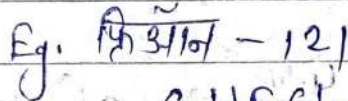 Eg. फ्रिऑन - 121